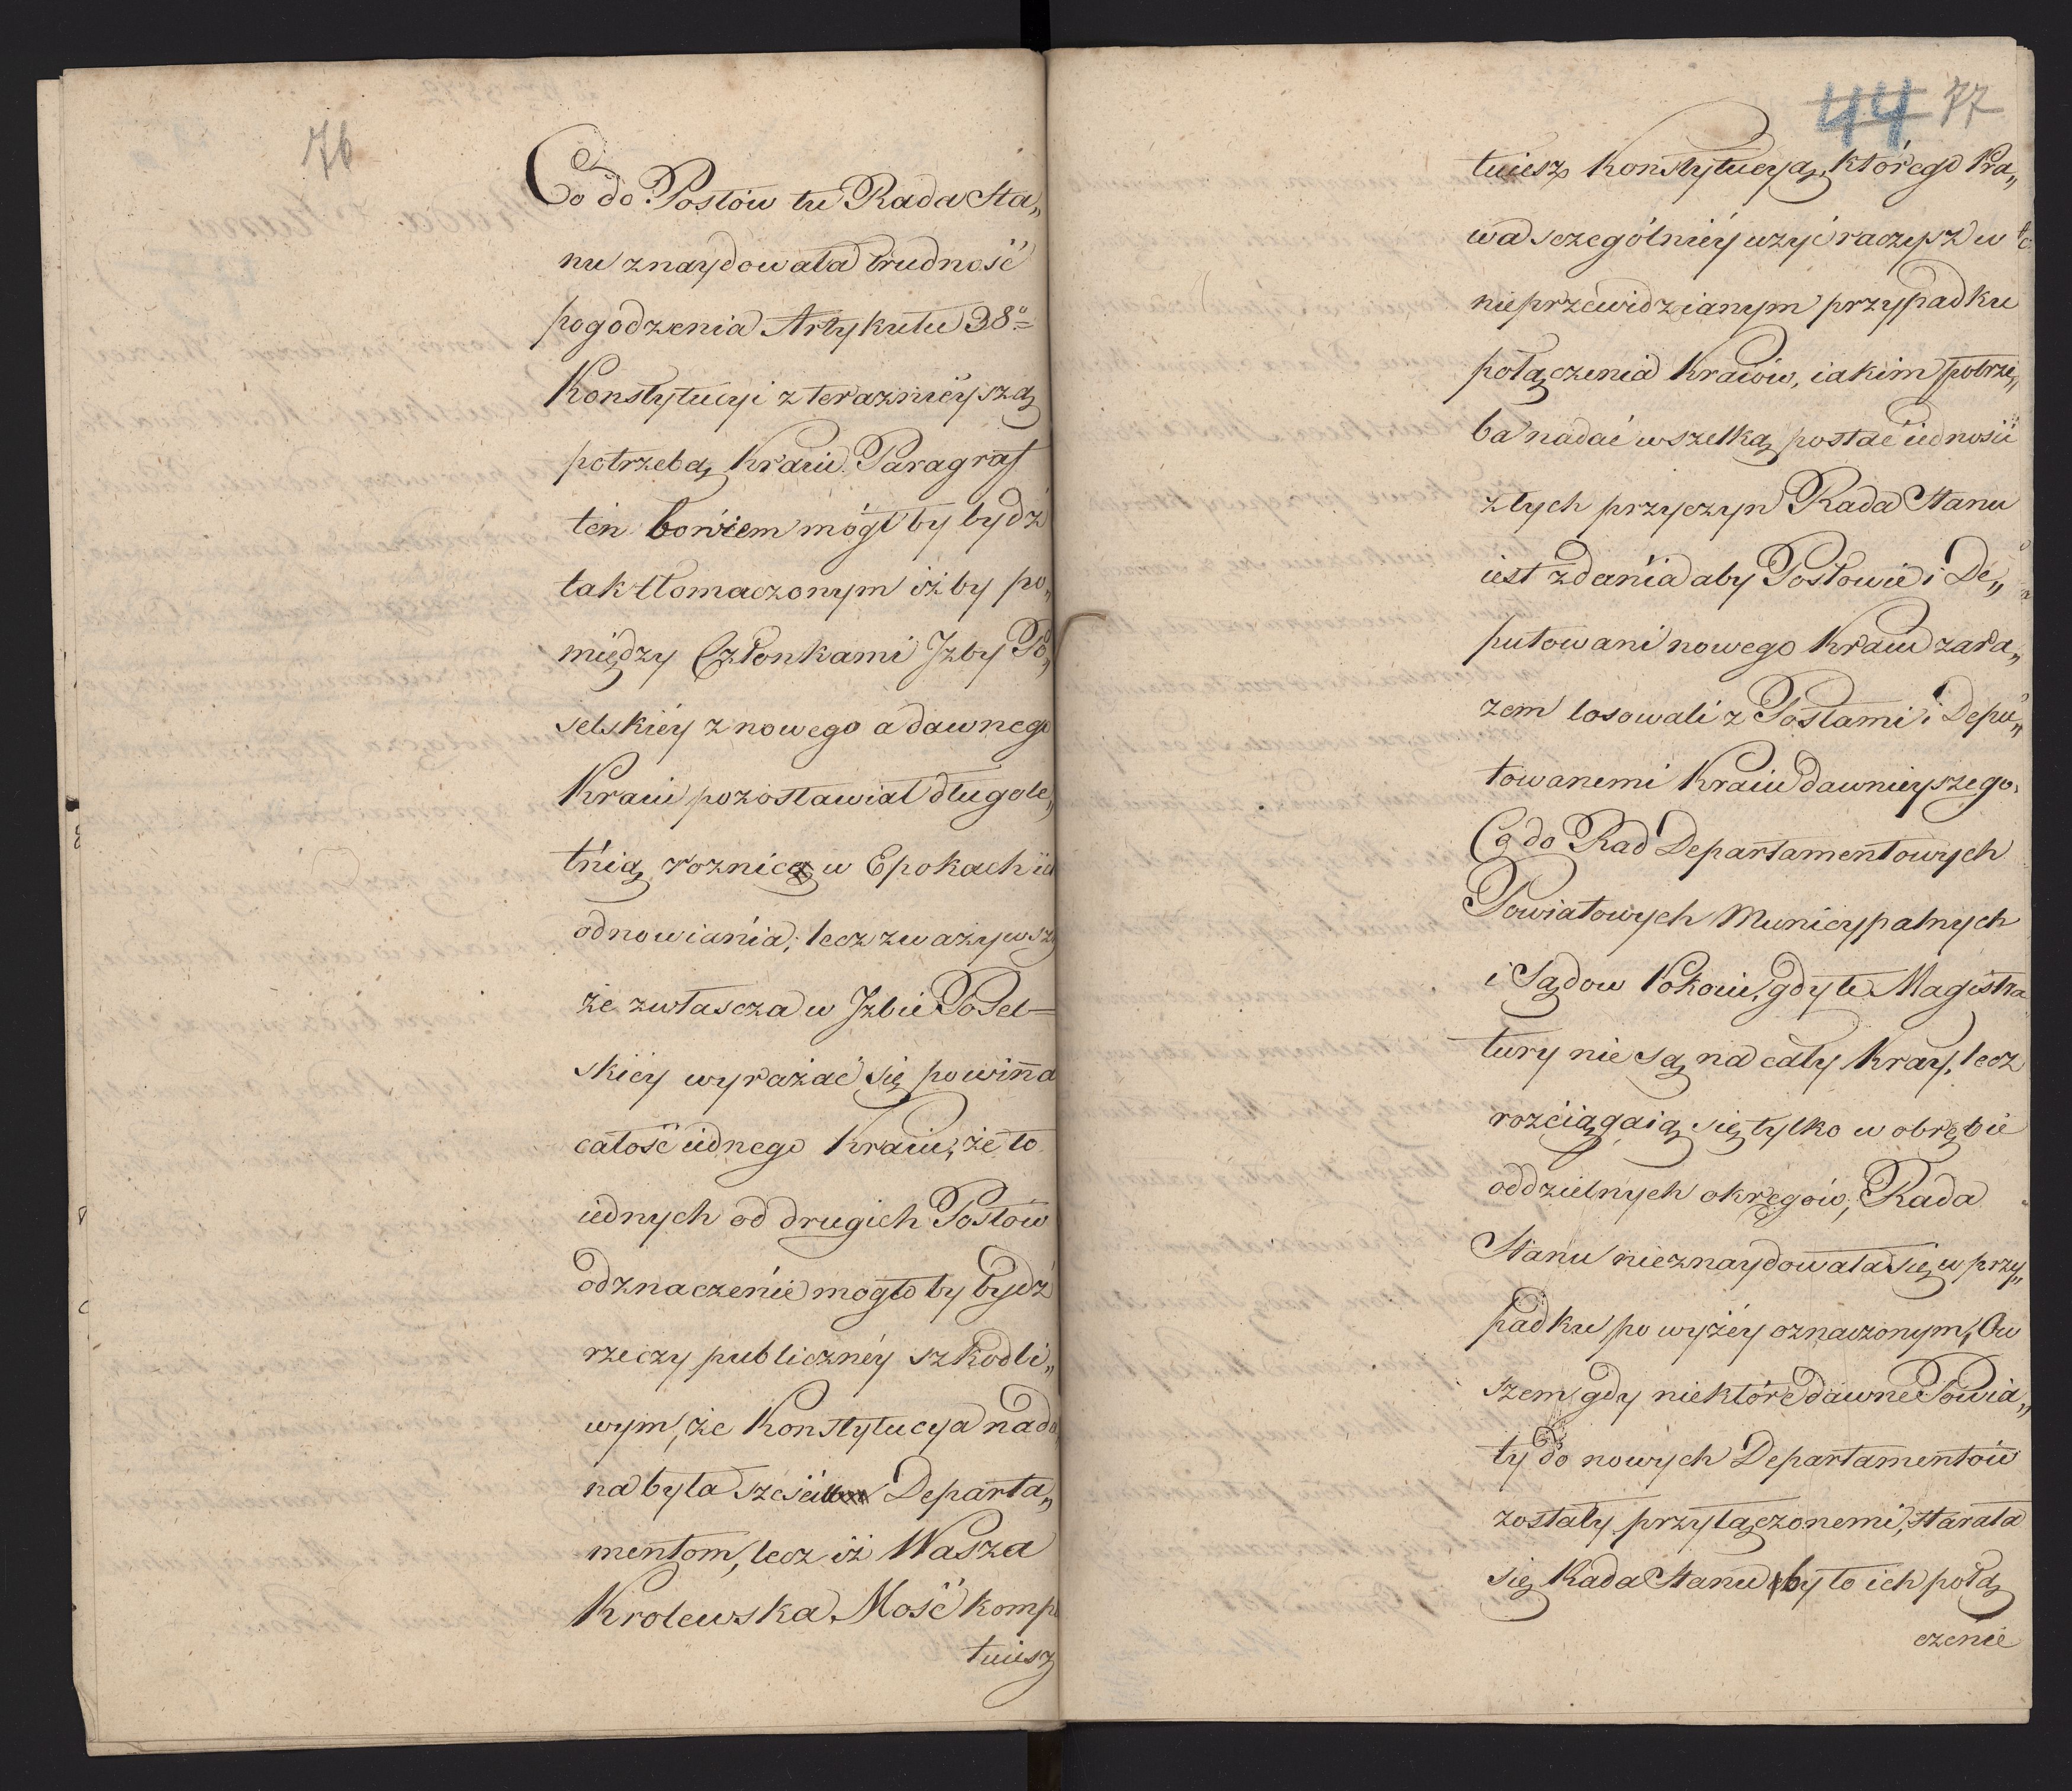 76
Co do Posłów tu Rada Sta„
nu znaydowała trudność
pogodzenia Artykułu 38º
Konstytucyi z teraznieyszą
potrzebą Kraiu. Paragraf
ten bowiem mógł by bydź
tak tłomaczonym iżby po„
między Członkami Izby Po„
selskiéy z nowego a dawnego
Kraiu pozostawiał długole„
tnią roznicą w Epokach ich
odnowiania; lecz zważywszy
że zwłascza w Izbie Posel=
skiéy wyrażać się powinna
całość iednego Kraiu, że to
iednych od drugich Posłów
odznaczenie mogło by bydź
rzeczy publicznéy szkodli„
wym, że Konstytucya nada
na była sześciu Departa„
mentom, lecz iż Wasza
Krolewska Mość komple
tuiesz
44 77
tuiesz Konstytucyą, którego Pra„
wa sczególniéy użyć raczysz w
nieprzewidzianym przypadku
połączenia Kraiów, iakim potrze„
ba nadać wszelką postać iedności
z tych przyczyn Rada Stanu
iest zdania aby Posłowie i De„
putowani nowego Kraiu zara„
zem losowali z Posłami i Depu„
towanemi Kraiu dawnieyszego.
Co do Rad Departamentowych
Powiatowych Municypalnych
i Sądow Pokoiu, gdy te Magistra
tury nie są na cały Kray, lecz
rozciągaią się tylko w obrębie
oddzielnych okręgów, Rada
Stanu nieznaydowała się w przy„
padku powyżéy oznaczonym, Ow
szem gdy niektóre dawne Powia„
ty do nowych Departamentów
zostały przyłączonemi, starała
się Rada Stanu by to ich połą
czenie